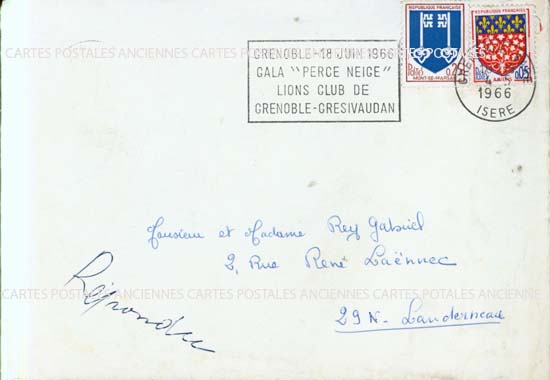 REPUBLIQUE FRANÇAISE
REPUBLIQUE FRANÇAISE
GRENOBLE-18 JUIN 1966
GALA "PERCE NEIGE"
LIONS CLUB DE
GRENOBLE-GRESIVAUDAN
Postes
MONT-DE-MARSAN
AMIENS
0,05
1966
ISERE
CARTES POSTALES ANCIENNES CARTES POSTALES ANCIENNES CARTES POSTALES ANCIENNES
Monsieur et Madame Rey Gabriel
2, Rue René Laënnec
Répondu
CARTES POSTALES ANCIENNES CARTES POSTALES ANCIENNES CARTES POSTALES ANCIENNES
29N - Landerneau